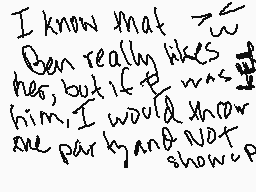 I know that
Ben really likes
her, but if I was
him, I would throw
the party and NOT
show up